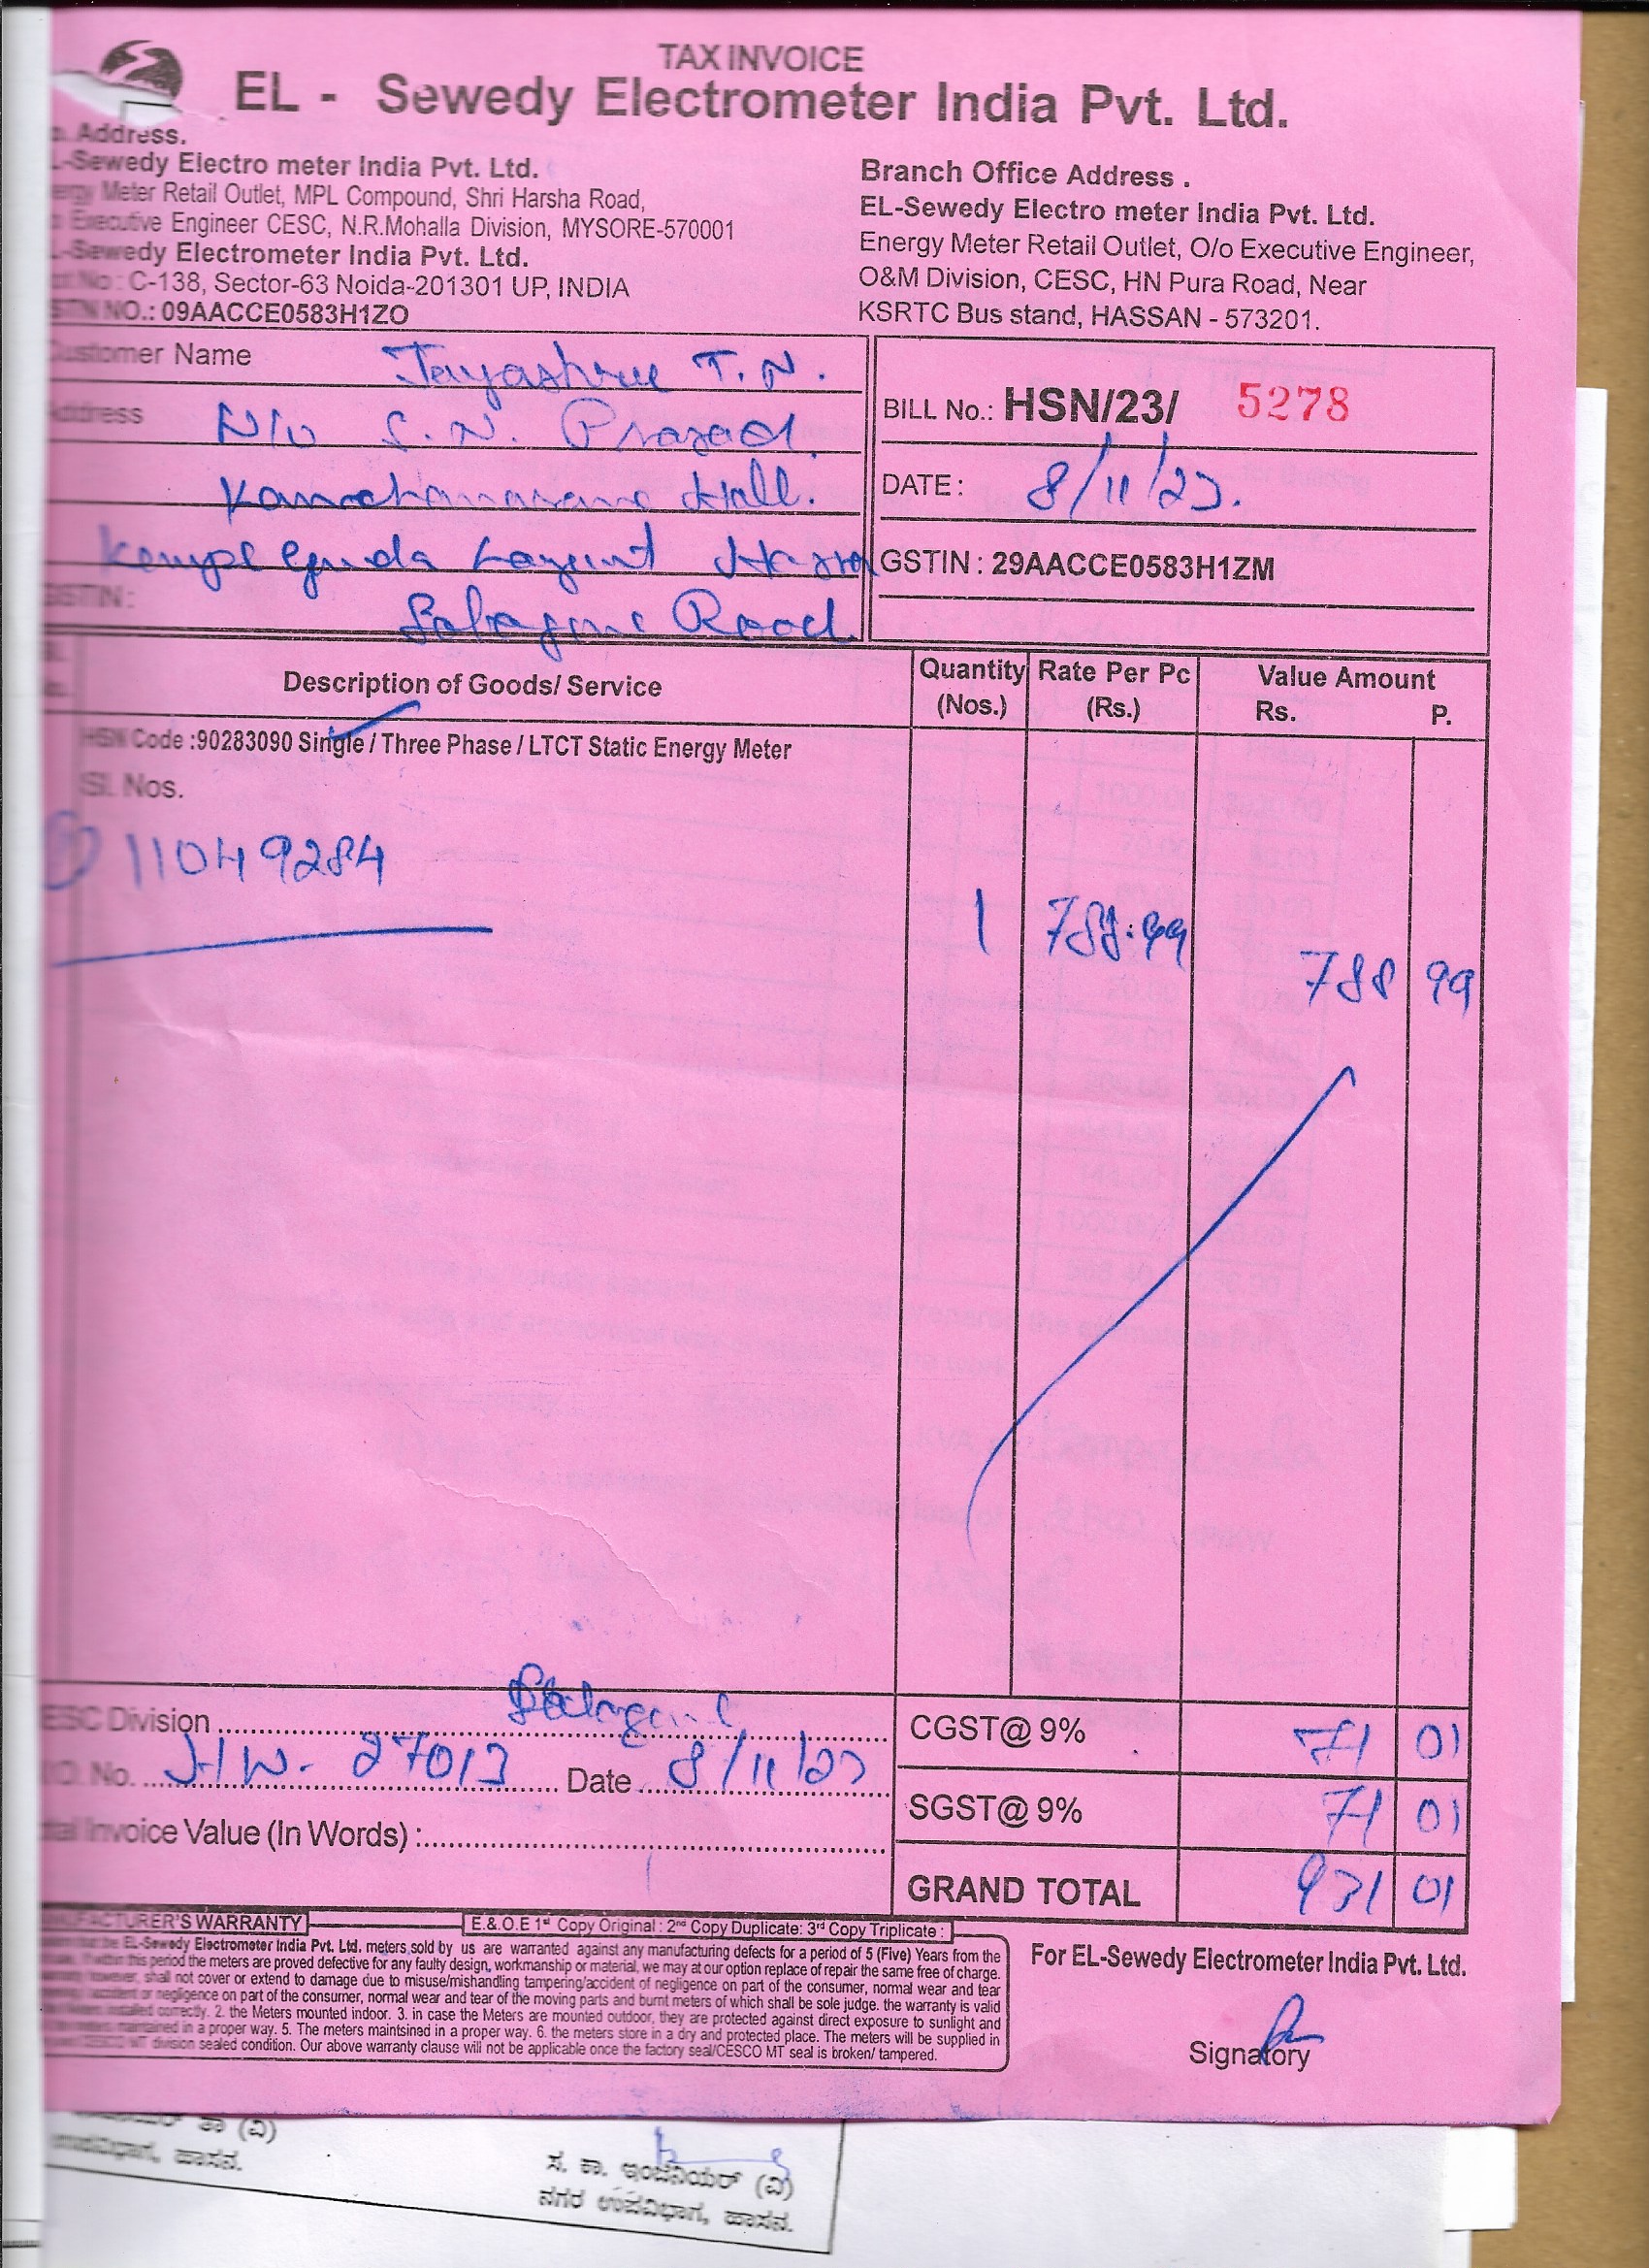 TAX INVOICE
EL - Sewedy Electrometer India Pvt. Ltd.
Address.
-Sewedy Electro meter India Pvt. Ltd.
ergy Meter Retail Outlet, MPL Compound, Shri Harsha Road,
Executive Engineer CESC, N.R.Mohalla Division, MYSORE-570001
-Sewedy Electrometer India Pvt. Ltd.
No : C-138, Sector-63 Noida-201301 UP, INDIA
STIN NO.: 09AACCE0583H1ZO
Branch Office Address .
EL-Sewedy Electro meter India Pvt. Ltd.
Energy Meter Retail Outlet, O/o Executive Engineer,
O&M Division, CESC, HN Pura Road, Near
KSRTC Bus stand, HASSAN - 573201.
Customer Name Jayashree T.N.
Address W/o S.N. Prasad
Hall.
Layout
GSTIN: Road
BILL No.: HSN/23/ 5278
DATE: 8/11/23.
GSTIN : 29AACCE0583H1ZM
Description of Goods/ Service Quantity (Nos.) Rate Per Pc (Rs.) Value Amount Rs. P.
HSN Code :90283090 Single / Three Phase / LTCT Static Energy Meter
Sl. Nos.
11049284
1 788.99 788 99
ESC Division
O. No. 27013 Date 8/11/23
tal Invoice Value (In Words) :
CGST@ 9% 71 01
SGST@ 9% 71 01
GRAND TOTAL 931 01
UFACTURER'S WARRANTY E.& O.E 1st Copy Original : 2nd Copy Duplicate: 3rd Copy Triplicate :
the EL-Sewedy Electrometer India Pvt. Ltd. meters sold by us are warranted against any manufacturing defects for a period of 5 (Five) Years from the
If within this period the meters are proved defective for any faulty design, workmanship or material, we may at our option replace of repair the same free of charge.
however, shall not cover or extend to damage due to misuse/mishandling tampering/accident of negligence on part of the consumer, normal wear and tear
accident or negligence on part of the consumer, normal wear and tear of the moving parts and burnt meters of which shall be sole judge. the warranty is valid
Meters installed correctly. 2. the Meters mounted indoor. 3. in case the Meters are mounted outdoor, they are protected against direct exposure to sunlight and
maintained in a proper way. 5. The meters maintsined in a proper way. 6. the meters store in a dry and protected place. The meters will be supplied in
MT division sealed condition. Our above warranty clause will not be applicable once the factory seal/CESCO MT seal is broken/ tampered.
For EL-Sewedy Electrometer India Pvt. Ltd.
Signatory
(ವಿ)
ಉಪವಿಭಾಗ, ಹಾಸನ.
ಸ. ಕಾ. ಇಂಜಿನಿಯರ್ (ವಿ)
ನಗರ ಉಪವಿಭಾಗ, ಹಾಸನ.